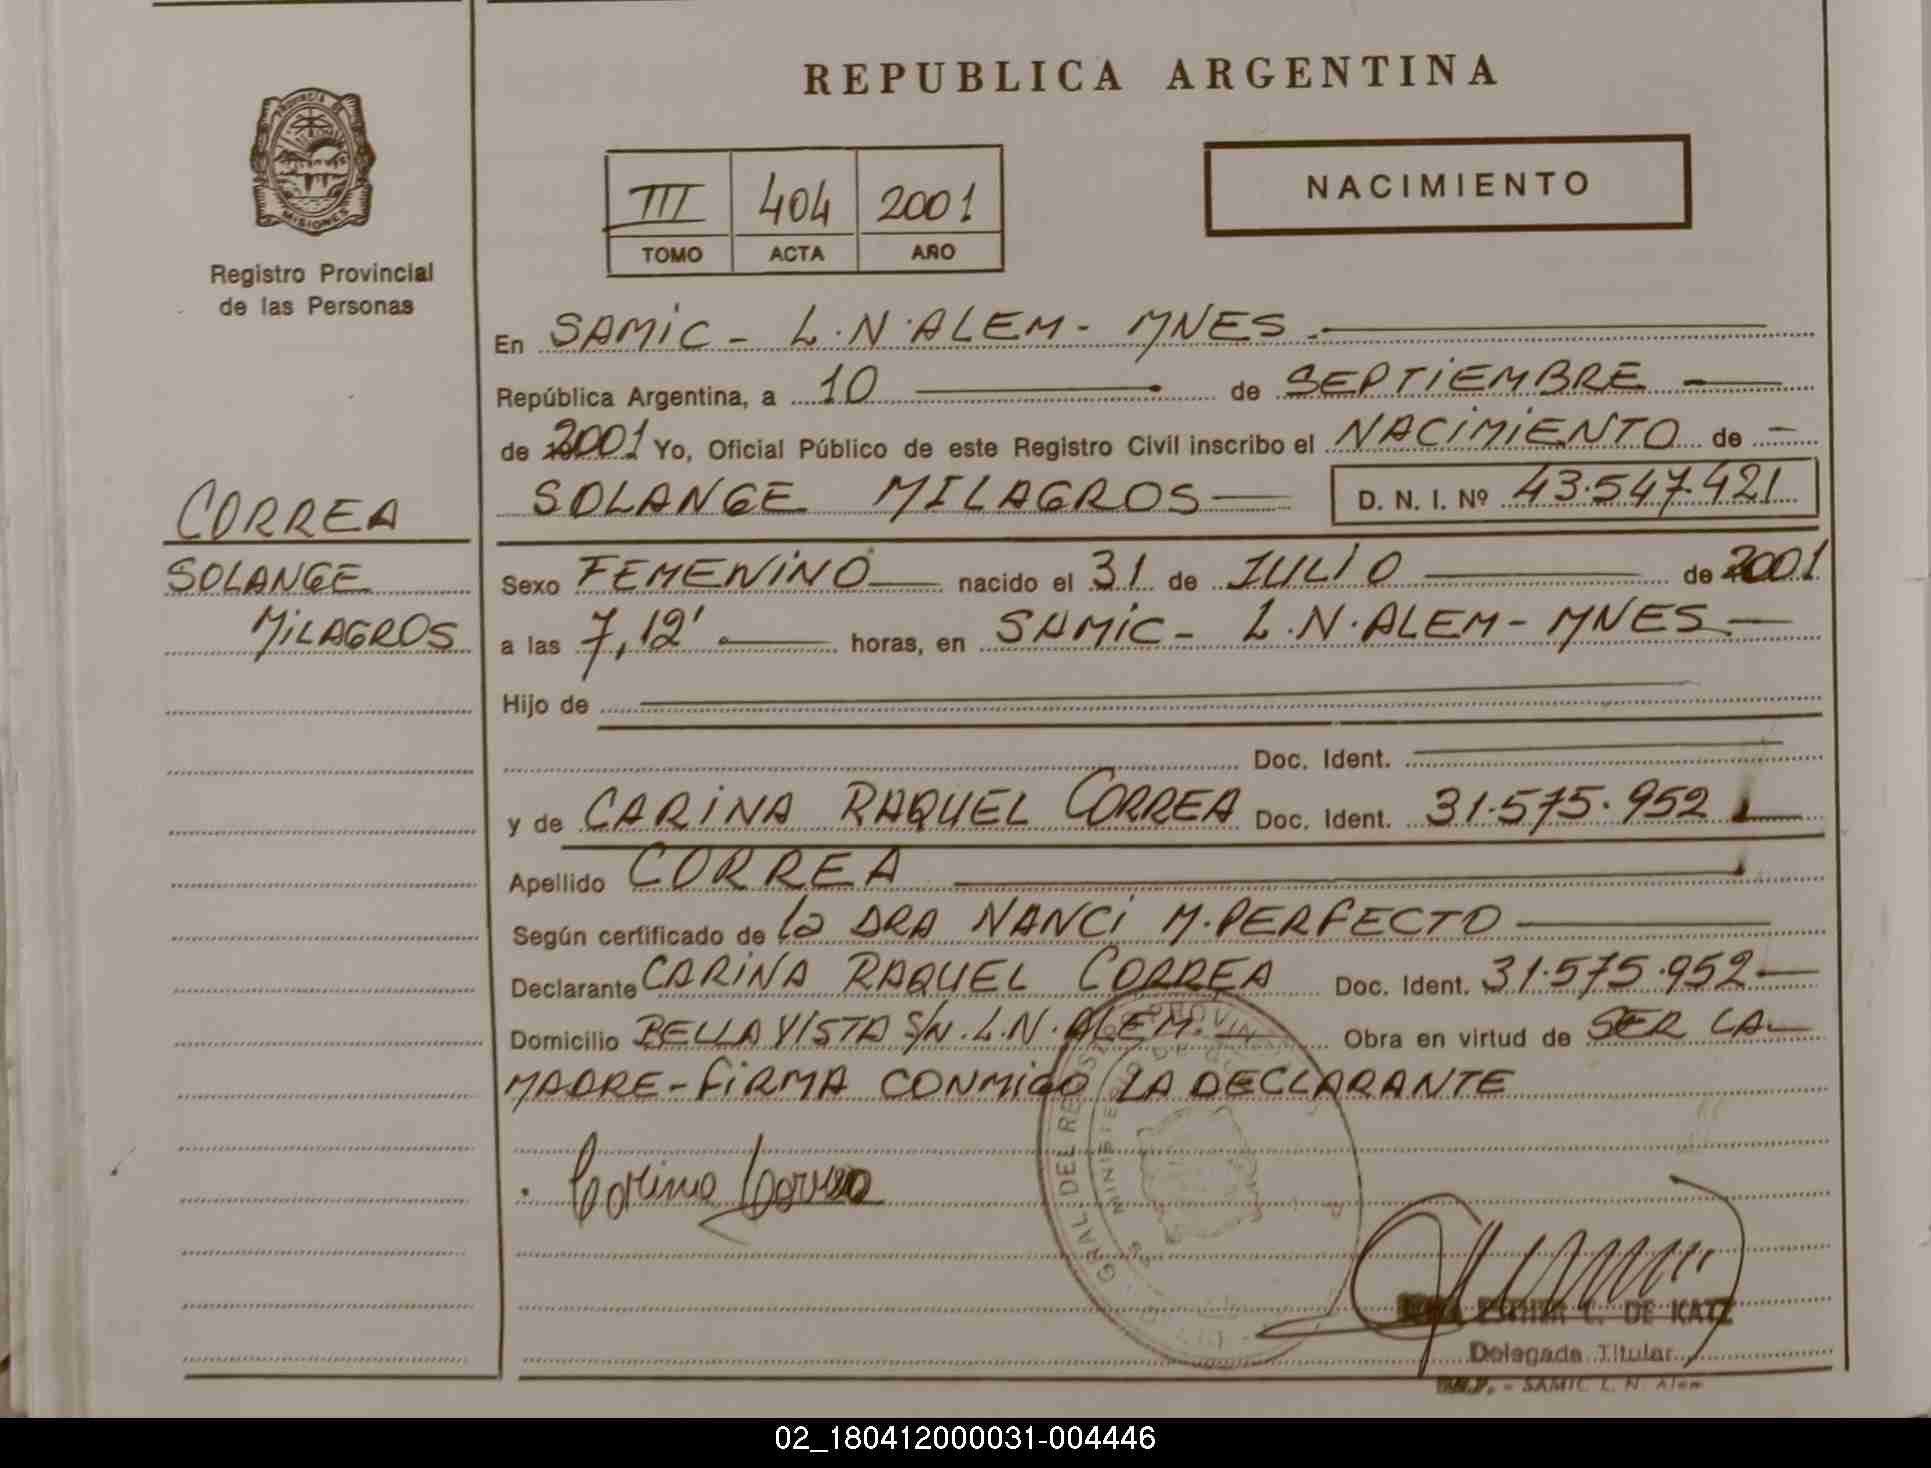 REPUBLICA ARGENTINA
PROVINCIA DE
MISIONES
Registro Provincial
de las Personas
III 404 2001
TOMO ACTA AÑO
NACIMIENTO
En SAMIC - L.N.ALEM - MNES.
República Argentina, a 10 de SEPTIEMBRE
de 2001 Yo, Oficial Público de este Registro Civil inscribo el NACIMIENTO de
SOLANGE MILAGROS D. N. I. Nº 43.547.421
CORREA
SOLANGE
MILAGROS
Sexo FEMENINO nacido el 31 de JULIO de 2001
a las 7,12' horas, en SAMIC - L.N.ALEM - MNES
Hijo de
Doc. Ident.
y de CARINA RAQUEL CORREA Doc. Ident. 31.575.952
Apellido CORREA
Según certificado de la DRA NANCI M. PERFECTO
Declarante CARINA RAQUEL CORREA Doc. Ident. 31.575.952
Domicilio BELLA VISTA S/N. L.N. ALEM. Obra en virtud de SER LA
MADRE - FIRMA CONMIGO LA DECLARANTE
Carina Correa
GRAL DEL REGISTRO PROVIN
MINISTERIO DE
ESTHER C. DE KATZ
Delegada Titular
SAMIC L. N. Alem
02_180412000031-004446